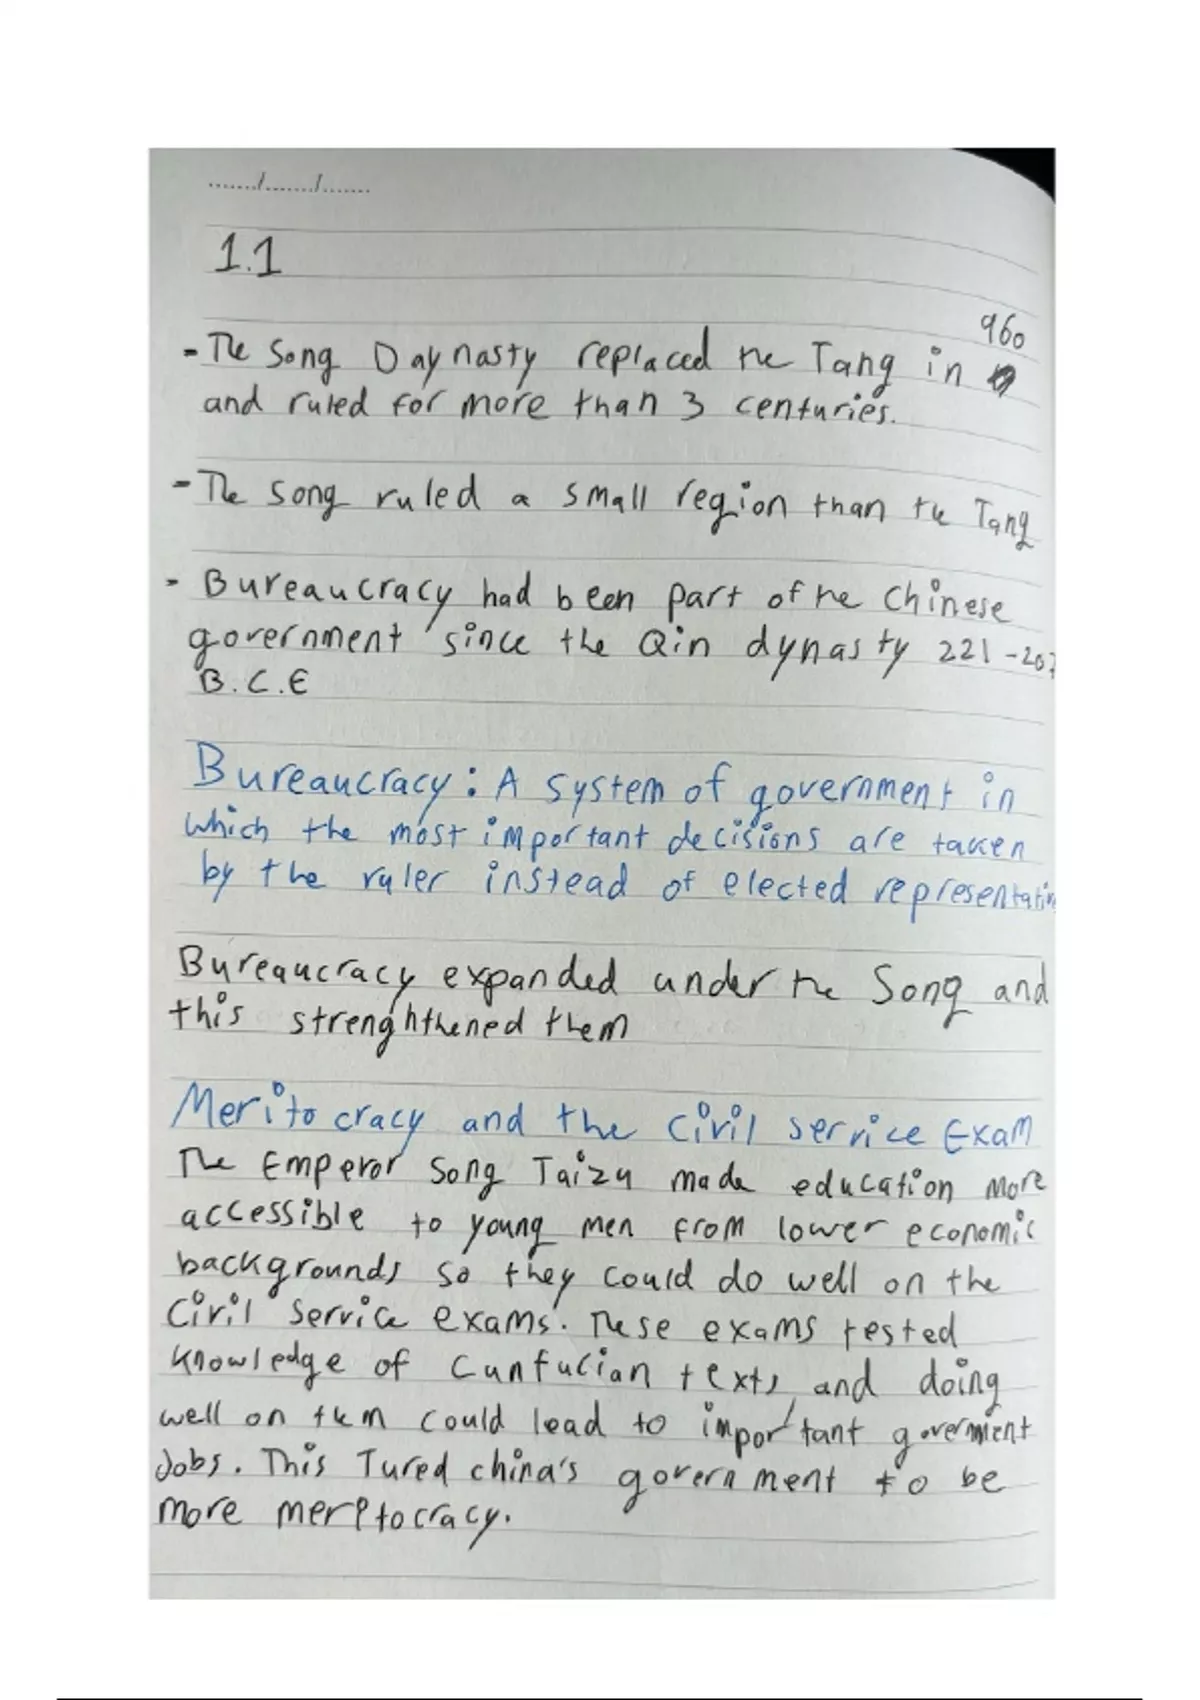 ......./......./.......
1.1
960
- The Song Daynasty replaced the Tang in
and ruled for more than 3 centuries.
- The song ruled a small region than the Tang
- Bureaucracy had been part of the Chinese
government since the Qin dynasty 221-207
B.C.E
Bureaucracy: A system of government in
which the most important decisions are taken
by the ruler instead of elected
Bureaucracy expanded under the Song and
this strenghthened them
Meritocracy and the Civil service Exam
The Emperor Song Taizu made education more
accessible to young men from lower economic
backgrounds so they could do well on the
Civil Service exams. These exams tested
knowledge of Cunfucian texts, and doing
well on them could lead to important goverment
Jobs. This Tured china's government to be
more meritocracy.